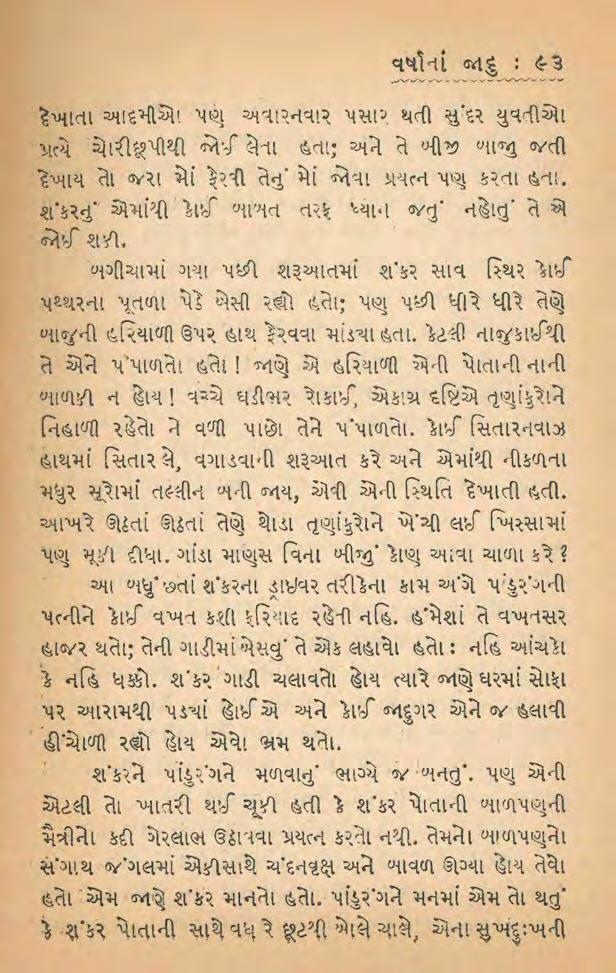 વર્ષાનાં જાદુ : ૯૩
દેખાતા આદમીઓ પણ અવારનવાર પસાર થતી સુંદર યુવતીઓ
પ્રત્યે ચોરીછૂપીથી જોઈ લેતા હતા; અને તે બીજી બાજુ જતી
દેખાય તો જરા મોં ફેરવી તેનું મોં જોવા પ્રયત્ન પણ કરતા હતા.
શંકરનું એમાંથી કોઈ બાબત તરફ ધ્યાન જતું નહોતું તે એ
જોઈ શકી.
બગીચામાં ગયા પછી શરૂઆતમાં શંકર સાવ સ્થિર કોઈ
પથ્થરના પૂતળા પેઠે બેસી રહ્યો હતો; પણ પછી ધીરે ધીરે તેણે
બાજુની હરિયાળી ઉપર હાથ ફેરવવા માંડ્યા હતા. કેટલી નાજુકાઈથી
તે એને પંપાળતો હતો ! જાણે એ હરિયાળી એની પોતાની નાની
બાળકી ન હોય ! વચ્ચે ઘડીભર રોકાઈ, એકાગ્ર દૃષ્ટિએ તૃણાંકુરોને
નિહાળી રહેતો ને વળી પાછો તેને પંપાળતો. કોઈ સિતારનવાઝ
હાથમાં સિતાર લે, વગાડવાની શરૂઆત કરે અને એમાંથી નીકળતા
મધુર સૂરોમાં તલ્લીન બની જાય, એવી એની સ્થિતિ દેખાતી હતી.
આખરે ઊઠતાં ઊઠતાં તેણે થોડા તૃણાંકુરોને ખેંચી લઈ ખિસ્સામાં
પણ મૂકી દીધા. ગાંડા માણસ વિના બીજું કોણ આવા ચાળા કરે ?
આ બધું છતાં શંકરના ડ્રાઇવર તરીકેના કામ અંગે પાંડુરંગની
પત્નીને કોઈ વખત કશી ફરિયાદ રહેતી નહિ. હંમેશાં તે વખતસર
હાજર થતો; તેની ગાડીમાં બેસવું તે એક લહાવો હતો : નહિ આંચકો
કે નહિ ધક્કો. શંકર ગાડી ચલાવતો હોય ત્યારે જાણે ઘરમાં સોફા
પર આરામથી પડ્યાં હોઈએ અને કોઈ જાદુગર એને જ હલાવી
હીંચોળી રહ્યો હોય એવો ભ્રમ થતો.
શંકરને પાંડુરંગને મળવાનું ભાગ્યે જ બનતું. પણ એની
એટલી તો ખાતરી થઈ ચૂકી હતી કે શંકર પોતાની બાળપણની
મૈત્રીનો કદી ગેરલાભ ઉઠાવવા પ્રયત્ન કરતો નથી. તેમનો બાળપણનો
સંગાથ જંગલમાં એકીસાથે ચંદનવૃક્ષ અને બાવળ ઊગ્યા હોય તેવો
હતો એમ જાણે શંકર માનતો હતો. પાંડુરંગને મનમાં એમ તો થતું
કે શંકર પોતાની સાથે વધારે છૂટથી બોલે ચાલે, એના સુખદુઃખની